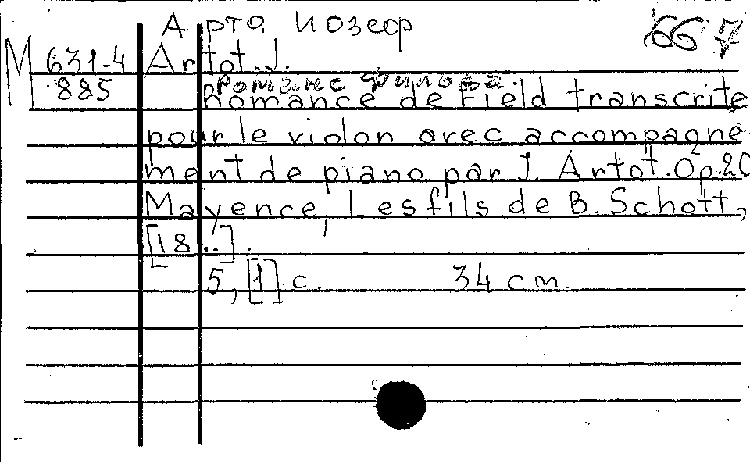 Арто Иозеф
667
М 631-4 Artot. J.
885 Романс Фильда.
Romance de Field transcrite
pour le violon avec accompagne-
ment de piano par J. Artôt. Op. 20
Mayence, Les fils de B. Schott,
[18..].
5, [1] с. 34 см.